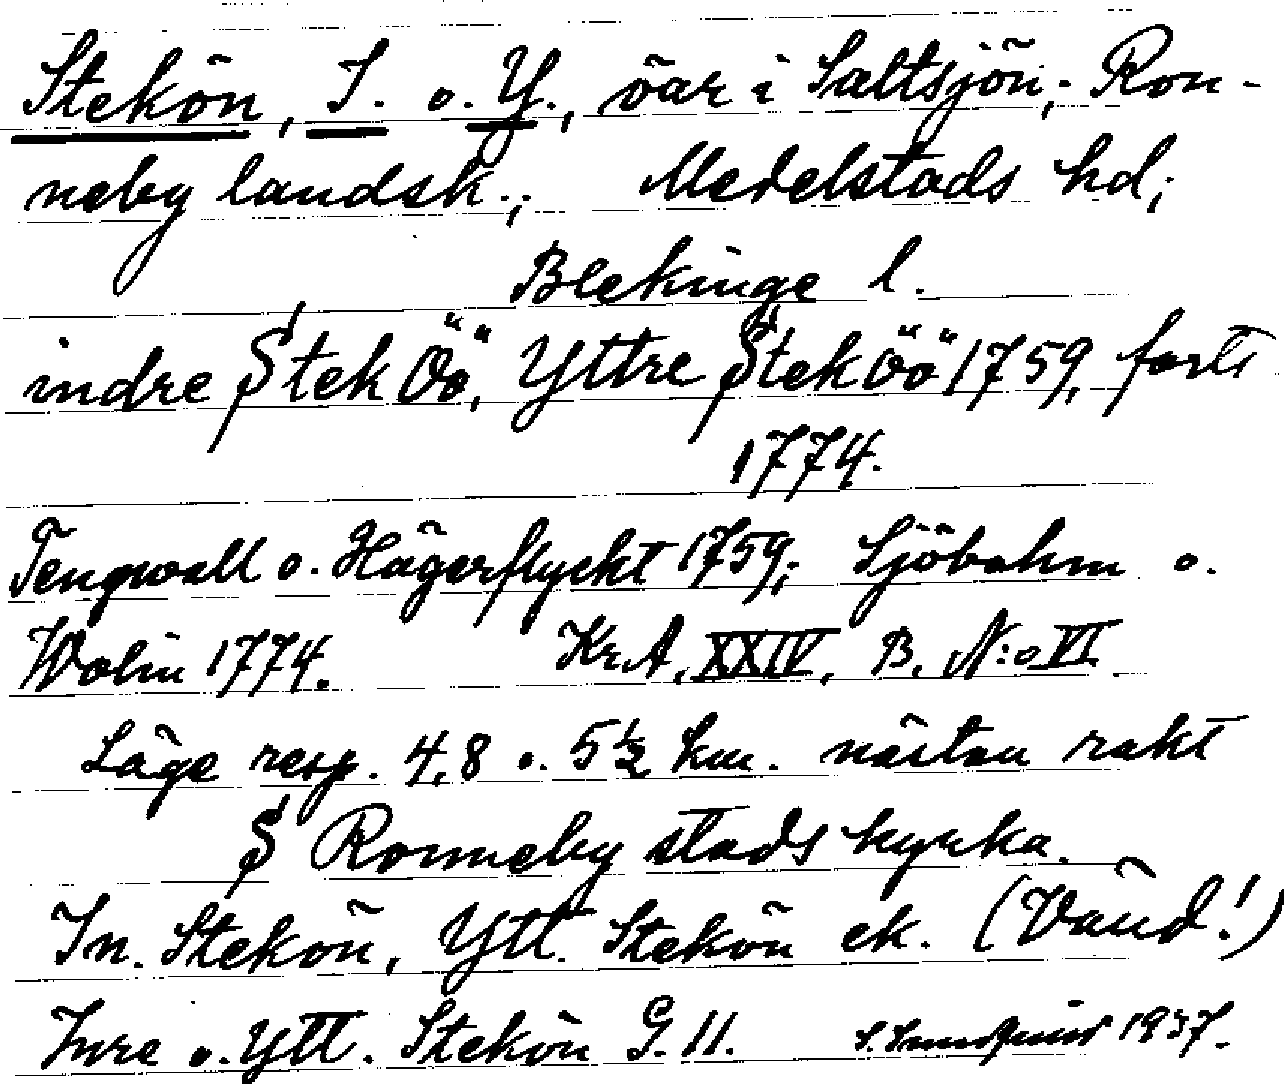 Stekön, I. o. Y., öar i Saltsjön; Ron-
neby landsk.; Medelstads hd;
Blekinge l.
indre Stek Öö, Yttre Stek öö 1759, forts
1774.
Tengwall o. Hägerflyckt 1759; Sjöbohm o.
Wolin 1774. Kr.A. XXIV, B. N:o VI
Läge resp. 4,8 o. 5½ km. nästan rakt
S Ronneby stads kyrka.
In. Stekön, Ytt. Stekön ek. (Vänd!)
Inre o. Ytt. Stekön G. 11. 1937.